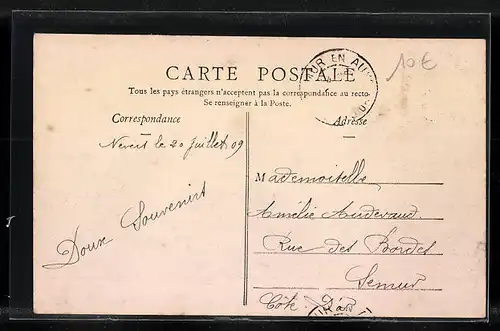 10€
MUR EN AU
CARTE POSTALE
Tous les pays étrangers n'acceptent pas la correspondance au recto.
Se renseigner à la Poste.
Correspondance
Adresse
le 20 Juillet 09
Doux Souvenirs
Mademoiselle
Amélie
Rue des Bordes
Semur
Côte d'Or